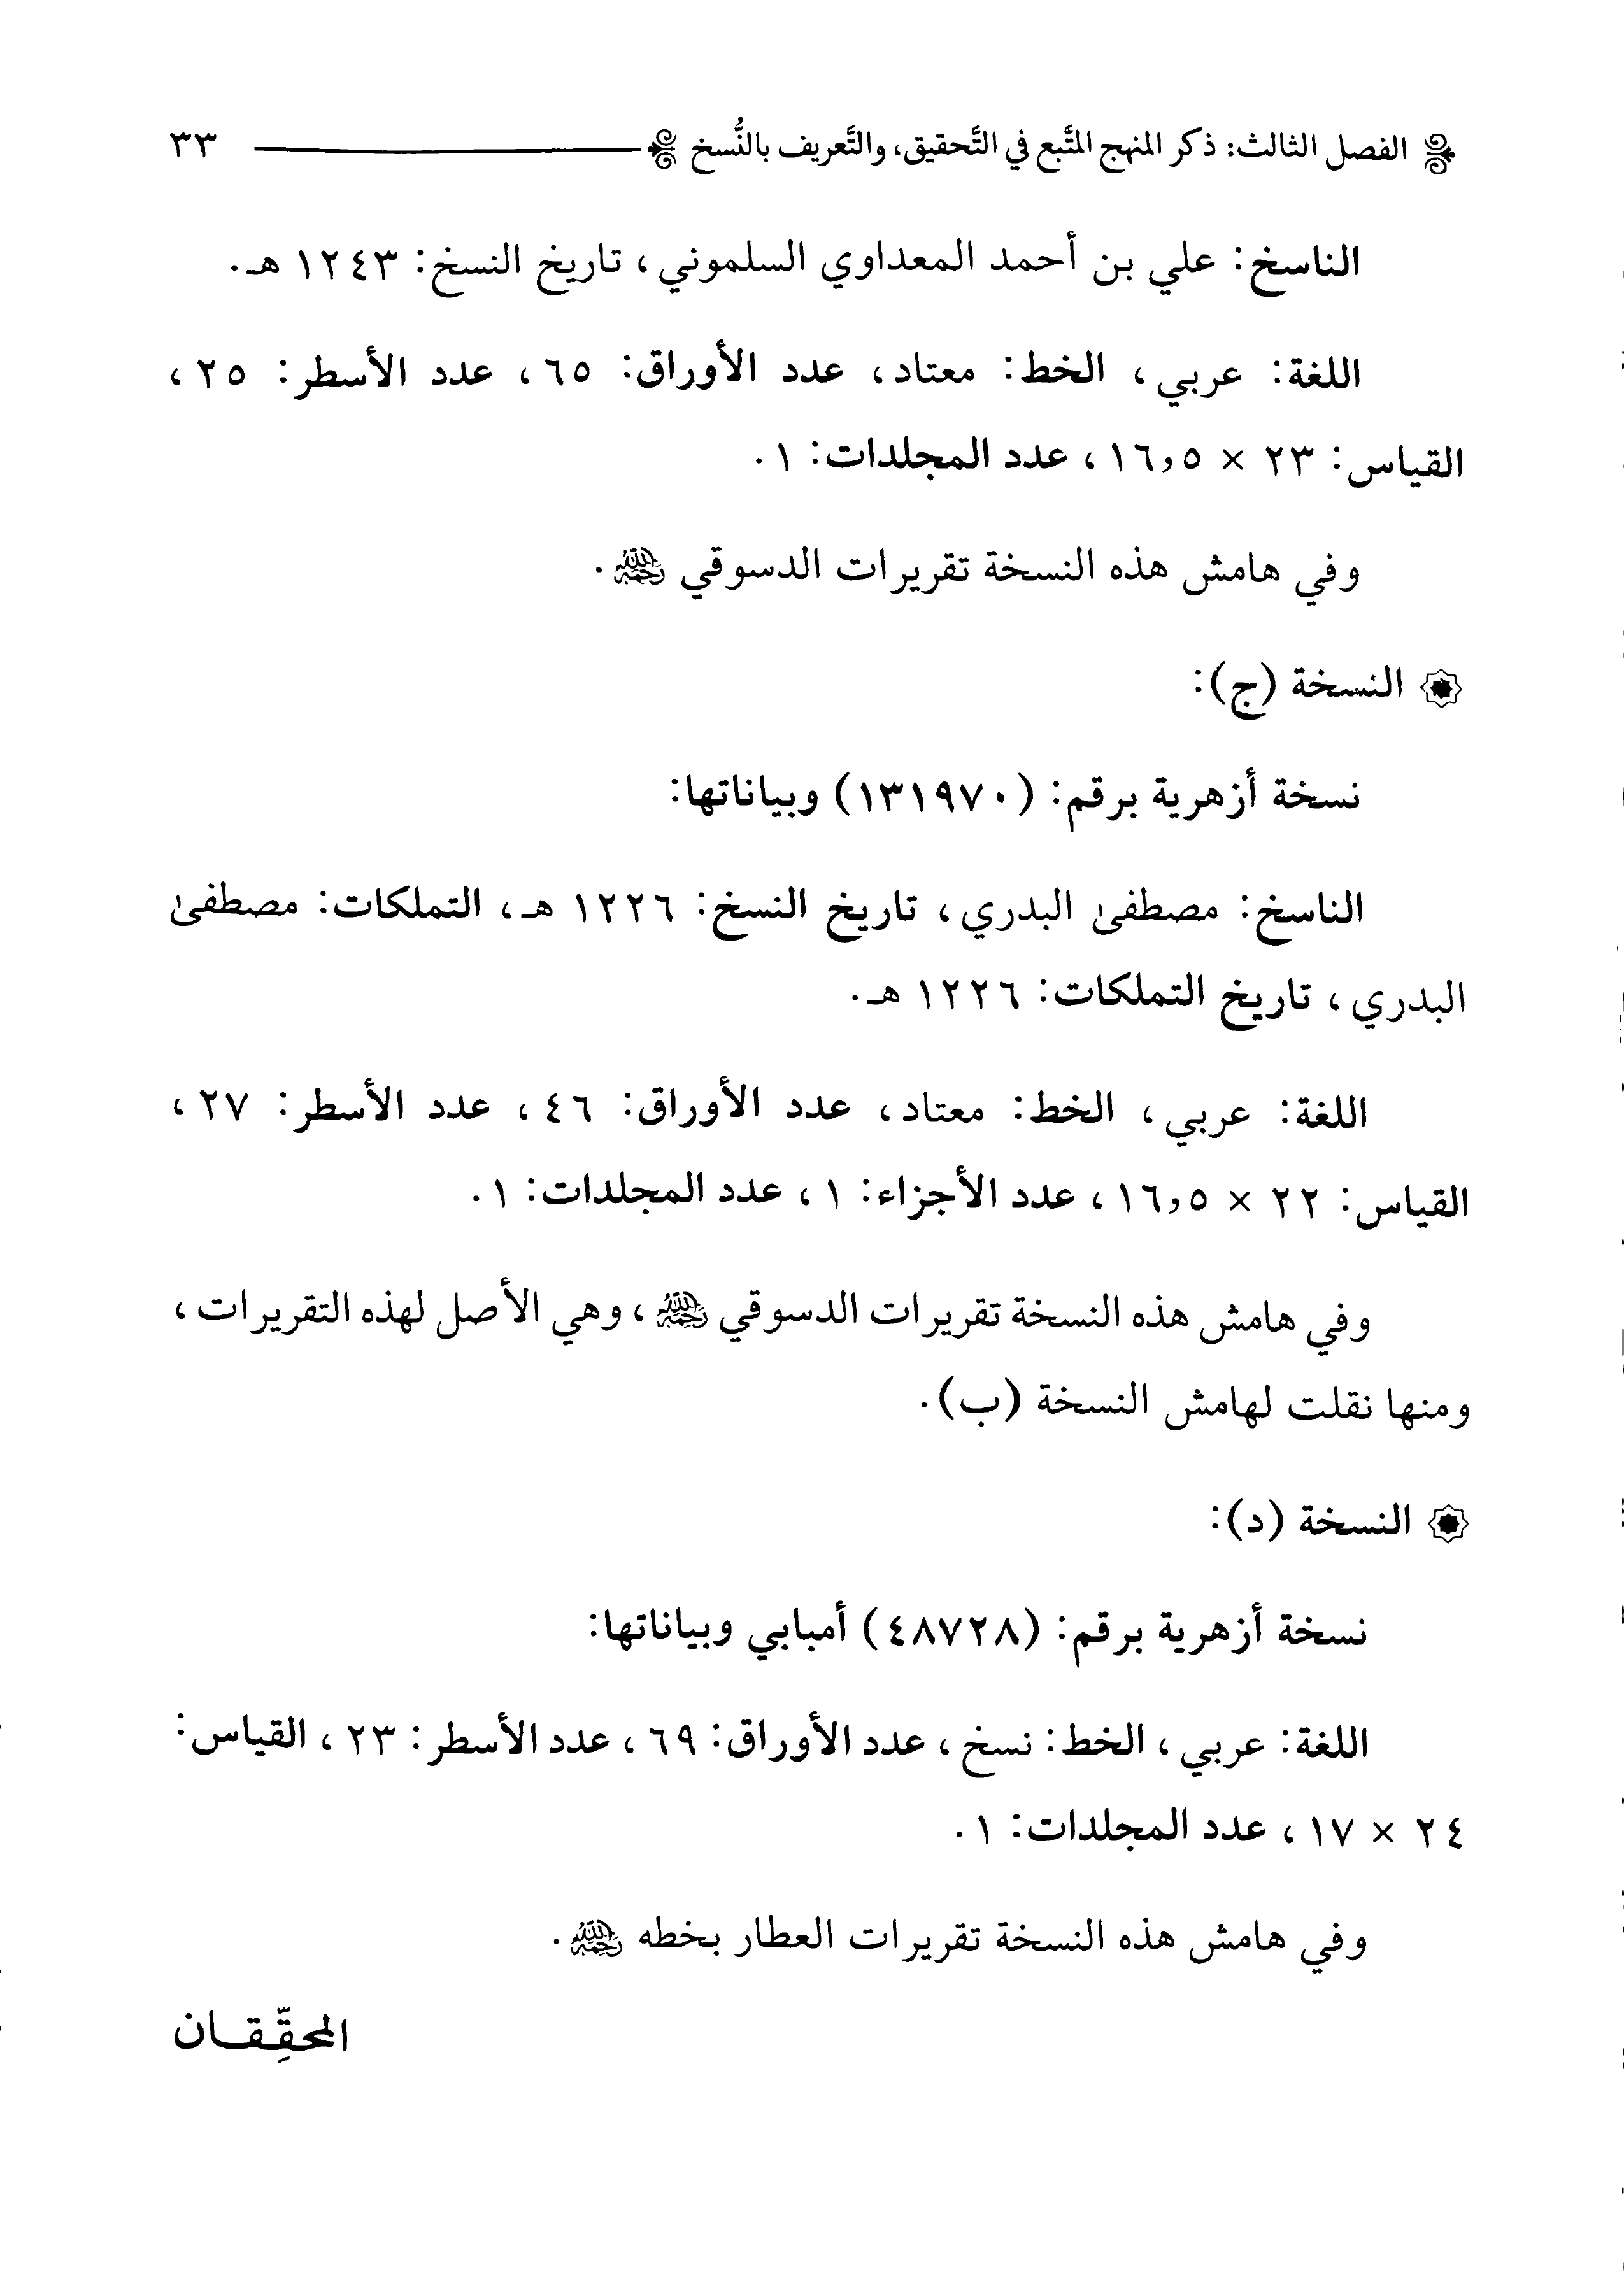 الفصل الثالث: ذكر المنهج المتَّبع في التَّحقيق، والتَّعريف بالنُّسخ ٣٣
الناسخ: علي بن أحمد المعداوي السلموني، تاريخ النسخ: ١٢٤٣ هـ.
اللغة: عربي، الخط: معتاد، عدد الأوراق: ٦٥، عدد الأسطر: ٢٥،
القياس: ٢٣ × ١٦,٥، عدد المجلدات: ١.
وفي هامش هذه النسخة تقريرات الدسوقي رحمه الله.
النسخة (ج):
نسخة أزهرية برقم: (١٣١٩٧٠) وبياناتها:
الناسخ: مصطفىٰ البدري، تاريخ النسخ: ١٢٢٦ هـ، التملكات: مصطفىٰ
البدري، تاريخ التملكات: ١٢٢٦ هـ.
اللغة: عربي، الخط: معتاد، عدد الأوراق: ٤٦، عدد الأسطر: ٢٧،
القياس: ٢٢ × ١٦,٥، عدد الأجزاء: ١، عدد المجلدات: ١.
وفي هامش هذه النسخة تقريرات الدسوقي رحمه الله، وهي الأصل لهذه التقريرات،
ومنها نقلت لهامش النسخة (ب).
النسخة (د):
نسخة أزهرية برقم: (٤٨٧٢٨) أمبابي وبياناتها:
اللغة: عربي، الخط: نسخ، عدد الأوراق: ٦٩، عدد الأسطر: ٢٣، القياس:
٢٤ × ١٧، عدد المجلدات: ١.
وفي هامش هذه النسخة تقريرات العطار بخطه رحمه الله.
المحقِّقـان